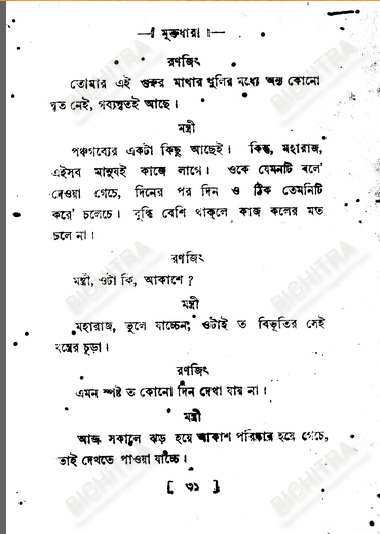 —। মুক্তধারা ॥—
রণজিৎ
তোমার এই গুরুর মাথার খুলির মধ্যে অন্য কোনো
ঘৃত নেই, গব্যঘৃতই আছে।
মন্ত্রী
পঞ্চগব্যের একটা কিছু আছেই। কিন্তু, মহারাজ,
এইসব মানুষই কাজে লাগে। ওকে যেমনটি বলে'
দেওয়া গেচে, দিনের পর দিন ও ঠিক তেমনিটি
করে' চলেচে। বুদ্ধি বেশি থাকলে কাজ কলের মত
চলে না।
রণজিৎ
মন্ত্রী, ওটা কি, আকাশে ?
মন্ত্রী
মহারাজ, ভুলে যাচ্চেন, ওটাই ত বিভূতির সেই
যন্ত্রের চূড়া।
রণজিৎ
এমন স্পষ্ট ত কোনো দিন দেখা যায় না।
মন্ত্রী
আজ সকালে ঝড় হয়ে আকাশ পরিষ্কার হয়ে গেচে,
তাই দেখতে পাওয়া যাচ্চে।
[ ৩১ ]
BICHITRA
BICHITRA
BICHITRA
BICHITRA
BICHITRA
BICHITRA